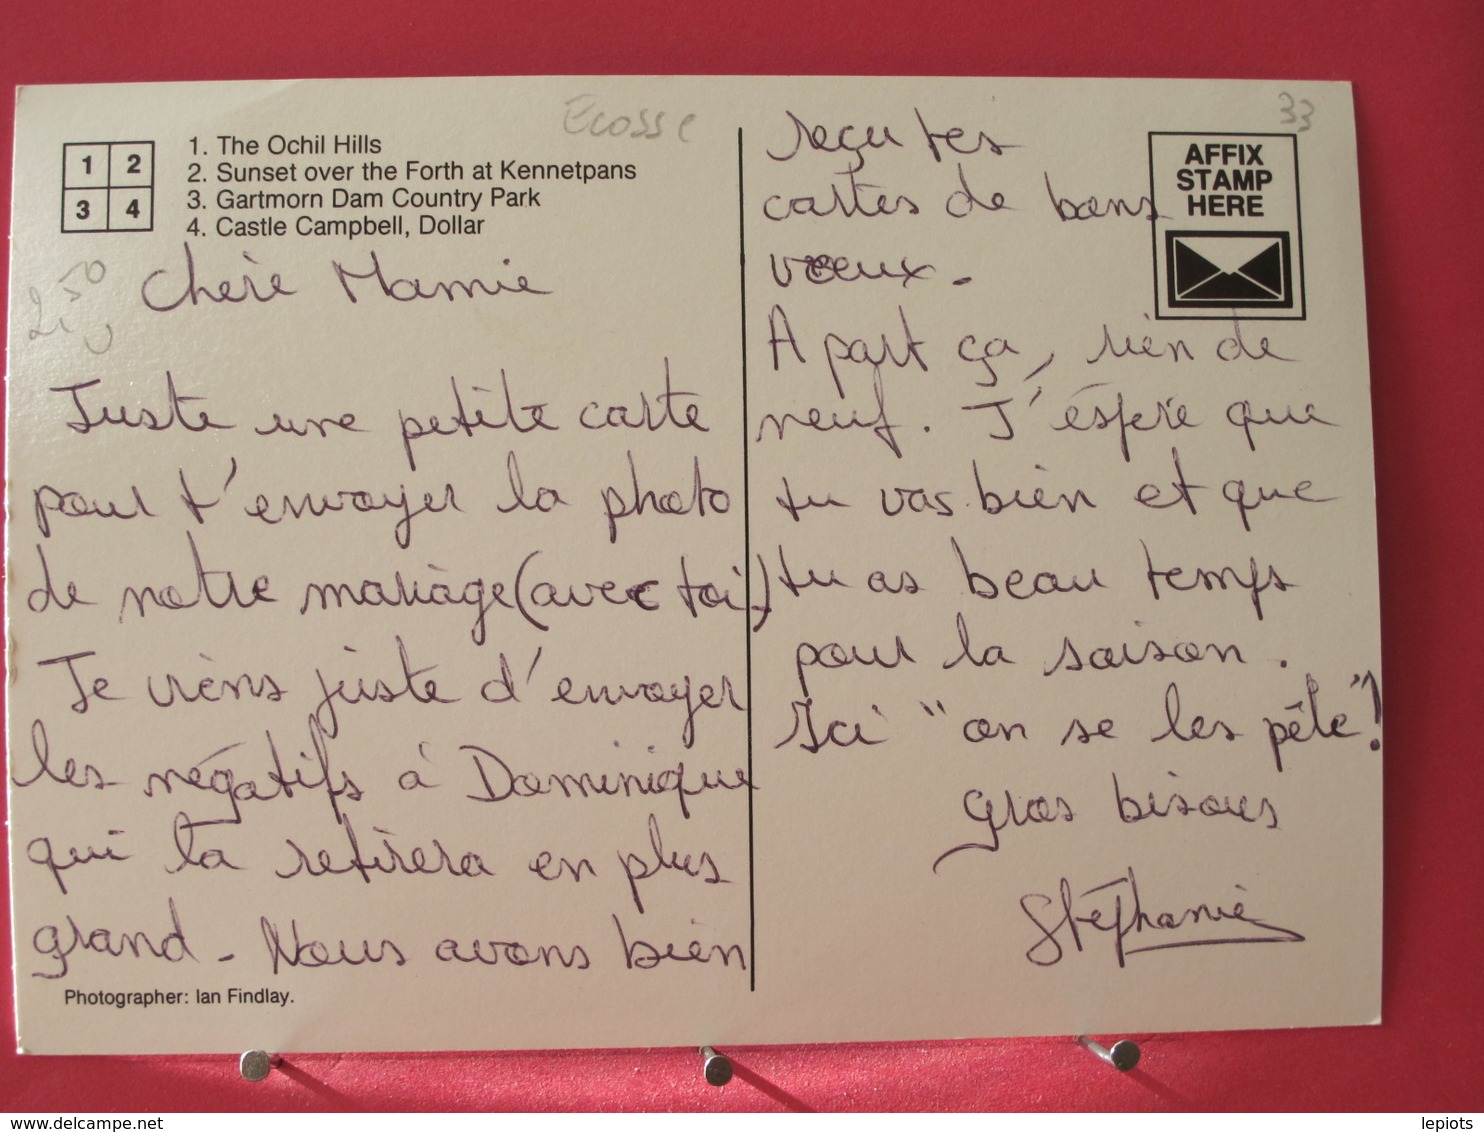 Ecosse
33
1 2
3 4
1. The Ochil Hills
2. Sunset over the Forth at Kennetpans
3. Gartmorn Dam Country Park
4. Castle Campbell, Dollar
2,50
Chère Mamie
Juste une petite carte
pour t'envoyer la photo
de notre mariage (avec toi).
Je viens juste d'envoyer
les négatifs à Dominique
qui la retirera en plus
grand - Nous avons bien
Photographer: Ian Findlay.
reçu tes
cartes de bons
vœux.
A part ça, rien de
neuf. J'éspère que
tu vas bien et que
tu as beau temps
pour la saison.
Ici "on se les pèle"!
Gros bisous
Stéphanie
AFFIX
STAMP
HERE
www.delcampe.net
lepiots